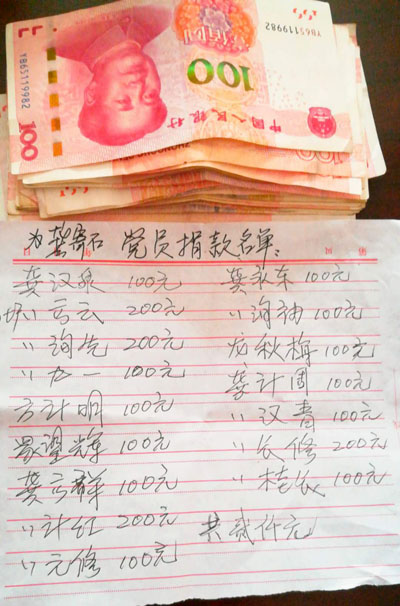 YB65119982
100
中国人民银行
YB65119982
100
为龚寄石 党员捐款名单:
龚汉泉 100元
〃言云 200元
〃 200元
〃九一 100元
方计明 100元
辉 100元
龚言群 100元
〃计红 200元
〃元修 100元
龚永东 100元
〃 100元
龙秋梅 100元
龚计周 100元
〃汉青 100元
〃长修 200元
〃桂长 100元
共贰仟元